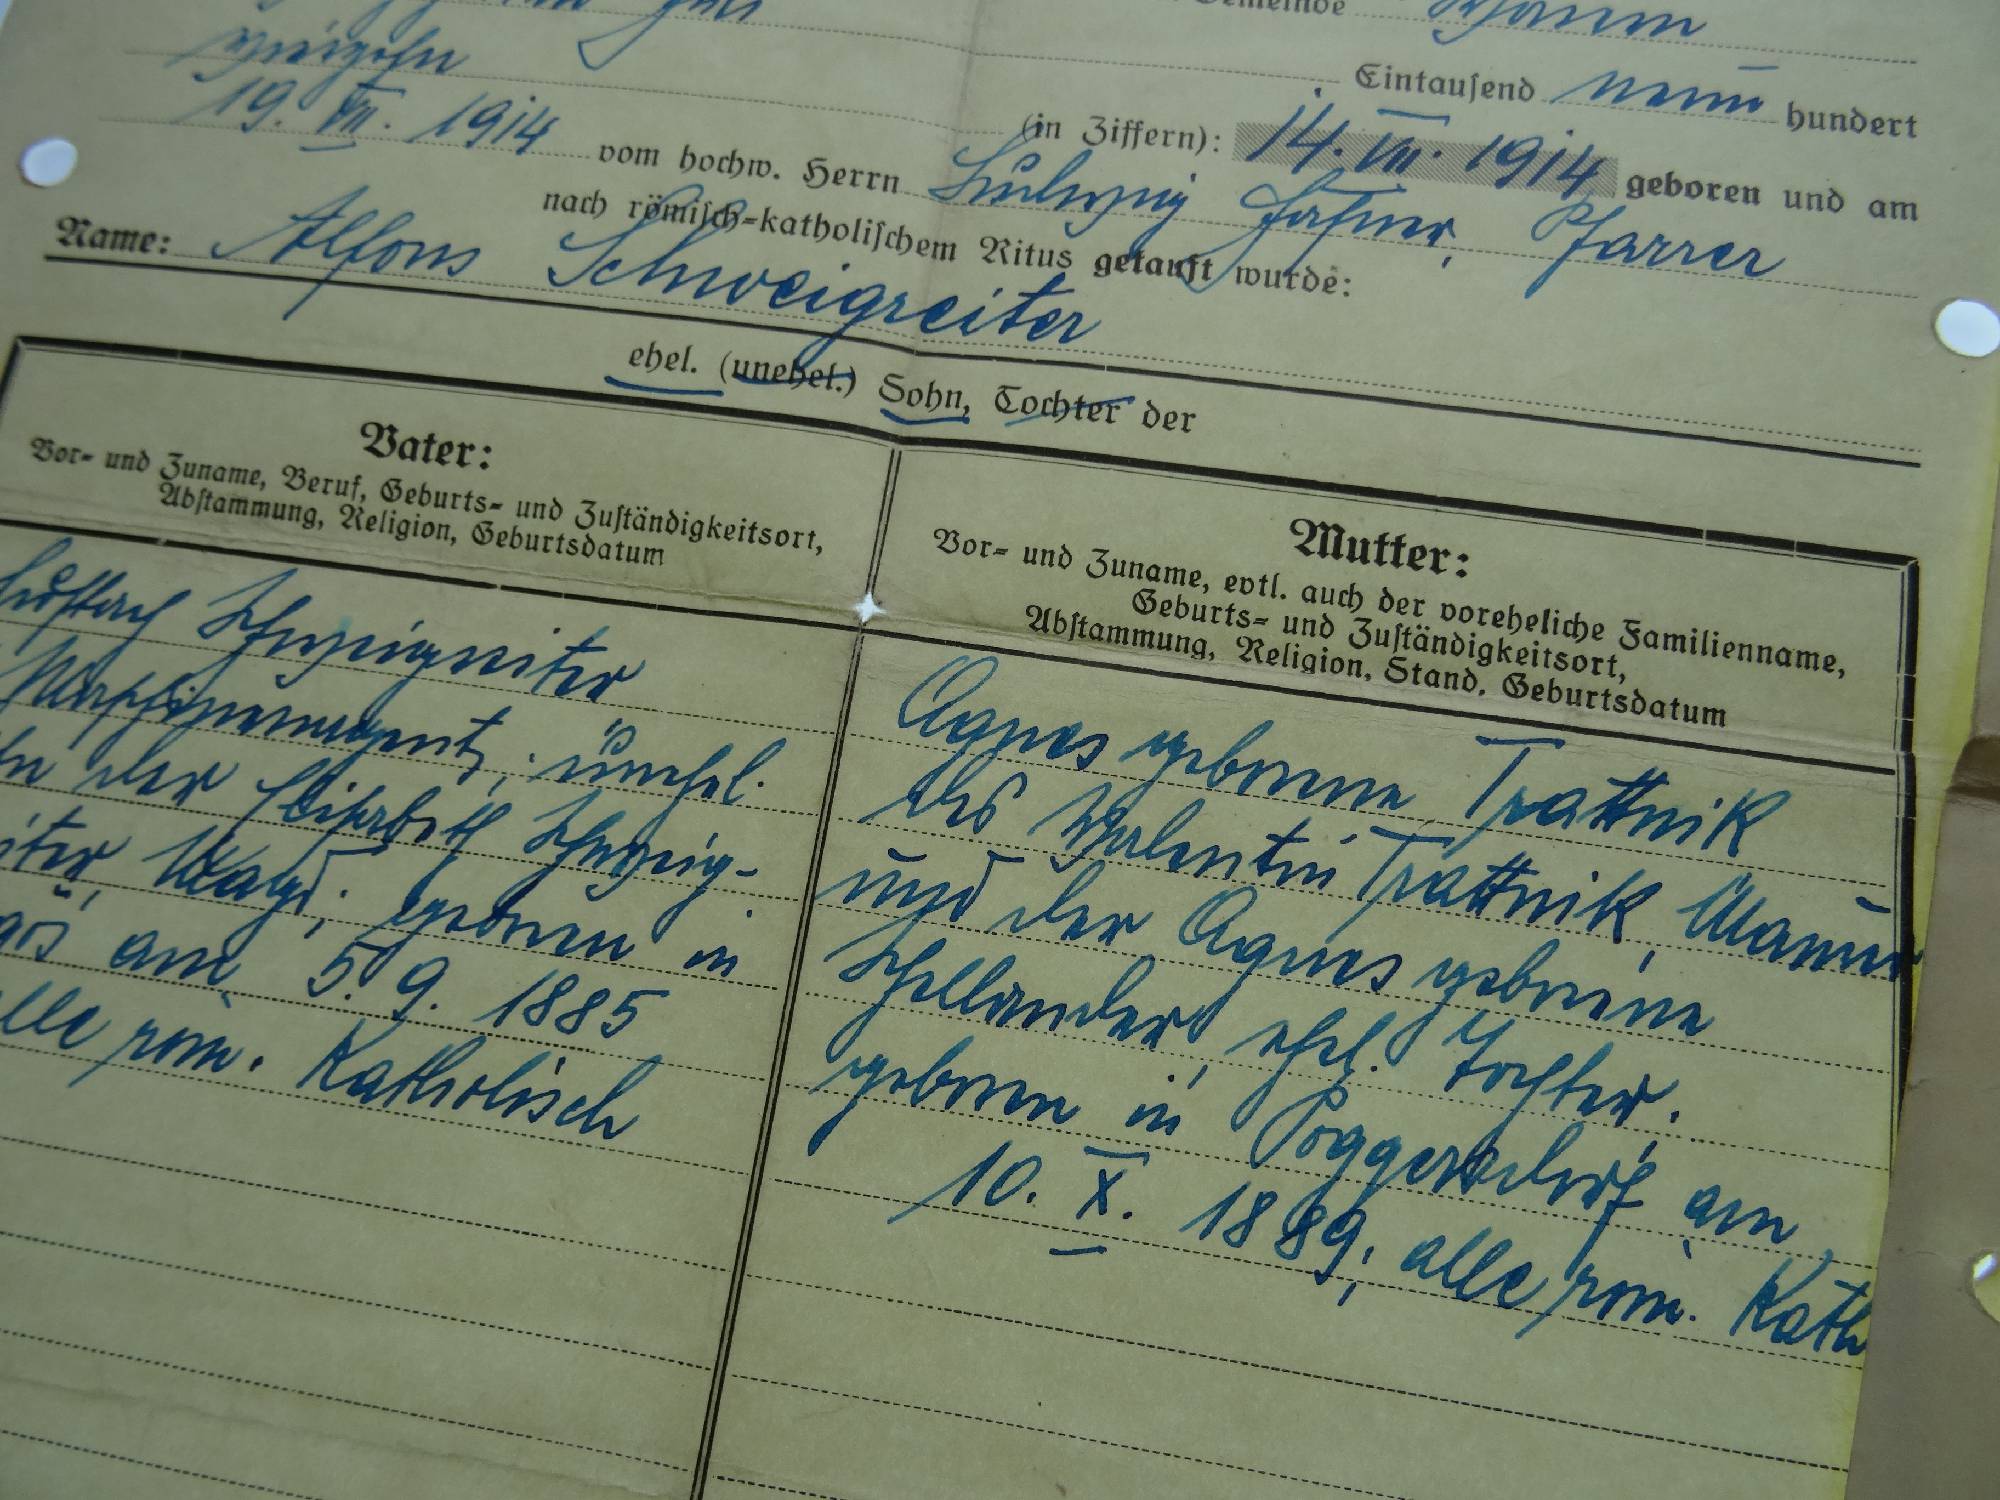 Gemeinde
Juli
Eintausend neun hundert
vierzehn
(in Ziffern): 14. VII. 1914 geboren und am
19. VII. 1914 vom hochw. Herrn Ludwig Pfarrer
nach römisch-katholischem Ritus getauft wurde:
Name: Alfons Schweigreiter
ehel. (unehel.) Sohn, Tochter der
Vater:
Vor- und Zuname, Beruf, Geburts- und Zuständigkeitsort,
Abstammung, Religion, Geburtsdatum
Schweigreiter
unehel.
der Elisabeth Schweig-
iter, Magd; geboren in
am 5. 9. 1885
alle röm. Katholisch
Mutter:
Vor- und Zuname, evtl. auch der voreheliche Familienname,
Geburts- und Zuständigkeitsort,
Abstammung, Religion, Stand, Geburtsdatum
Agnes geborene Trattnik
des Valentin Trattnik, Maurer
und der Agnes geborene
Schellander, ehel. Tochter.
geboren in Poggersdorf am
10. X. 1889; alle röm. Kath